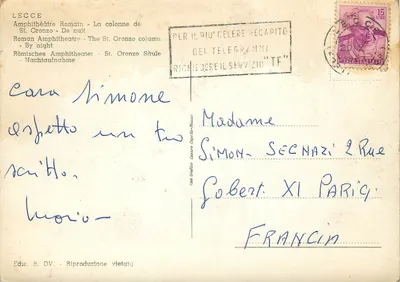 LECCE
Amphithéâtre Romain - La colonne de
St. Oronzo - De nuit
Roman Amphitheatre - The St. Oronzo column
- By night
Römisches Amphitheater - St. Oronzo Säule
- Nachtaufnahme
PER IL PIU' CELERE RECAPITO
DEI TELEGRAMMI
RICHIEDERE IL SERVIZIO "TF"
15
Cara Simone
aspetto un tuo
scritto.
Mario
Madame
SIMON- SEGNAZI 2 Rue
Gobert. XI PARIG.
FRANCIA
Ediz. S. DV. - Riproduzione vietata